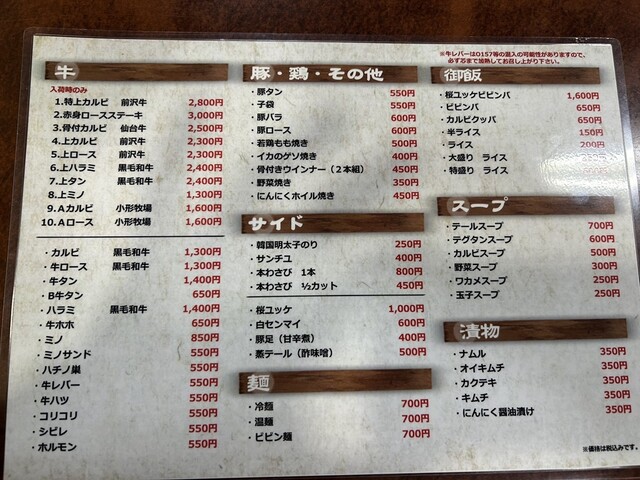 ※牛レバーはO157等の混入の可能性がありますので、
必ずるまで加熱してお召し上がり下さい。
牛
入荷時のみ
1.特上カルビ 前沢牛 2,800円
2.赤身ロースステーキ 3,000円
3.骨付カルビ 仙台牛 2,500円
4.上カルビ 前沢牛 2,300円
5.上ロース 前沢牛 2,300円
6.上ハラミ 黒毛和牛 2,400円
7.上タン 黒毛和牛 2,400円
8.上ミノ 1,300円
9.Aカルビ 小形牧場 1,600円
10.Aロース 小形牧場 1,600円
・カルビ 黒毛和牛 1,300円
・牛ロース 黒毛和牛 1,300円
・牛タン 1,400円
・B牛タン 650円
・ハラミ 黒毛和牛 1,400円
・牛ホホ 650円
・ミノ 850円
・ミノサンド 550円
・ハチノ巣 550円
・牛レバー 550円
・牛ハツ 550円
・コリコリ 550円
・シビレ 550円
・ホルモン 550円
豚・鶏・その他
・豚タン 550円
・子袋 550円
・豚バラ 600円
・豚ロース 600円
・若鶏もも焼き 500円
・イカのゲソ焼き 400円
・骨付きウインナー(2本組) 450円
・野菜焼き 350円
・にんにくホイル焼き 450円
サイド
・韓国明太子のり 250円
・サンチュ 400円
・本わさび 1本 800円
・本わさび ½カット 450円
・桜ユッケ 1,000円
・白センマイ 600円
・豚足(甘辛煮) 400円
・蒸テール(酢味噌) 500円
麺
・冷麺 700円
・温麺 700円
・ビビン麺 700円
御飯
・桜ユッケビビンバ 1,600円
・ビビンバ 650円
・カルビクッパ 650円
・半ライス 150円
・ライス 200円
・大盛り ライス
・特盛り ライス
スープ
・テールスープ 700円
・テグタンスープ 600円
・カルビスープ 500円
・野菜スープ 300円
・ワカメスープ 250円
・玉子スープ 250円
漬物
・ナムル 350円
・オイキムチ 350円
・カクテキ 350円
・キムチ 350円
・にんにく醤油漬け 350円
※価格は税込みです。